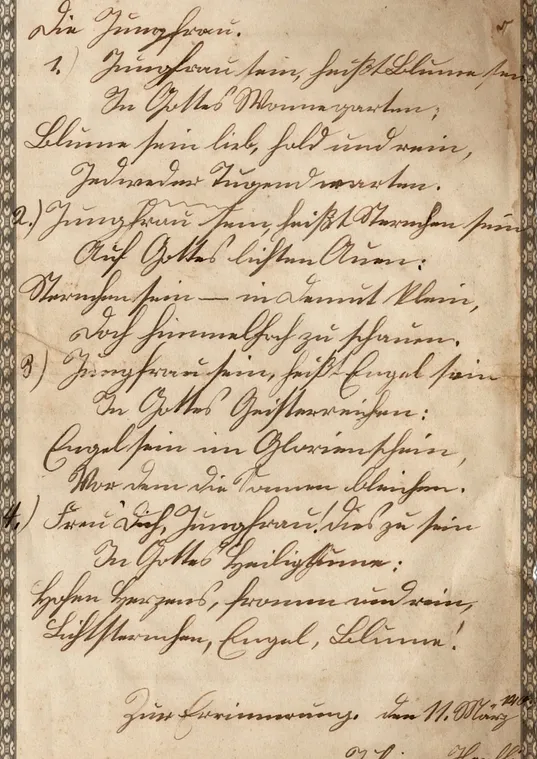 Die Jungfrau.
1.) Jungfrau sein, heißt Blume sein
In Gottes Wonnegarten;
Blume sein lieb, hold und rein,
Jedweder Tugend warten.
2.) Jungfrau sein, heißt Sternchen sein
Auf Gottes lichten Auen:
Sternchen sein — in Demut klein,
Doch himmelhoch zu schauen.
3) Jungfrau sein, heißt Engel sein
In Gottes Geisterreichen:
Engel sein im Glorienschein,
Vor dem die Sonnen bleichen.
4.) Freu' Dich, Jungfrau! dies zu sein
In Gottes Heiligthume:
Hohen Herzens, fromm und rein,
Lichtsternchen, Engel, Blume!
Zur Errinnerung. den 11. März